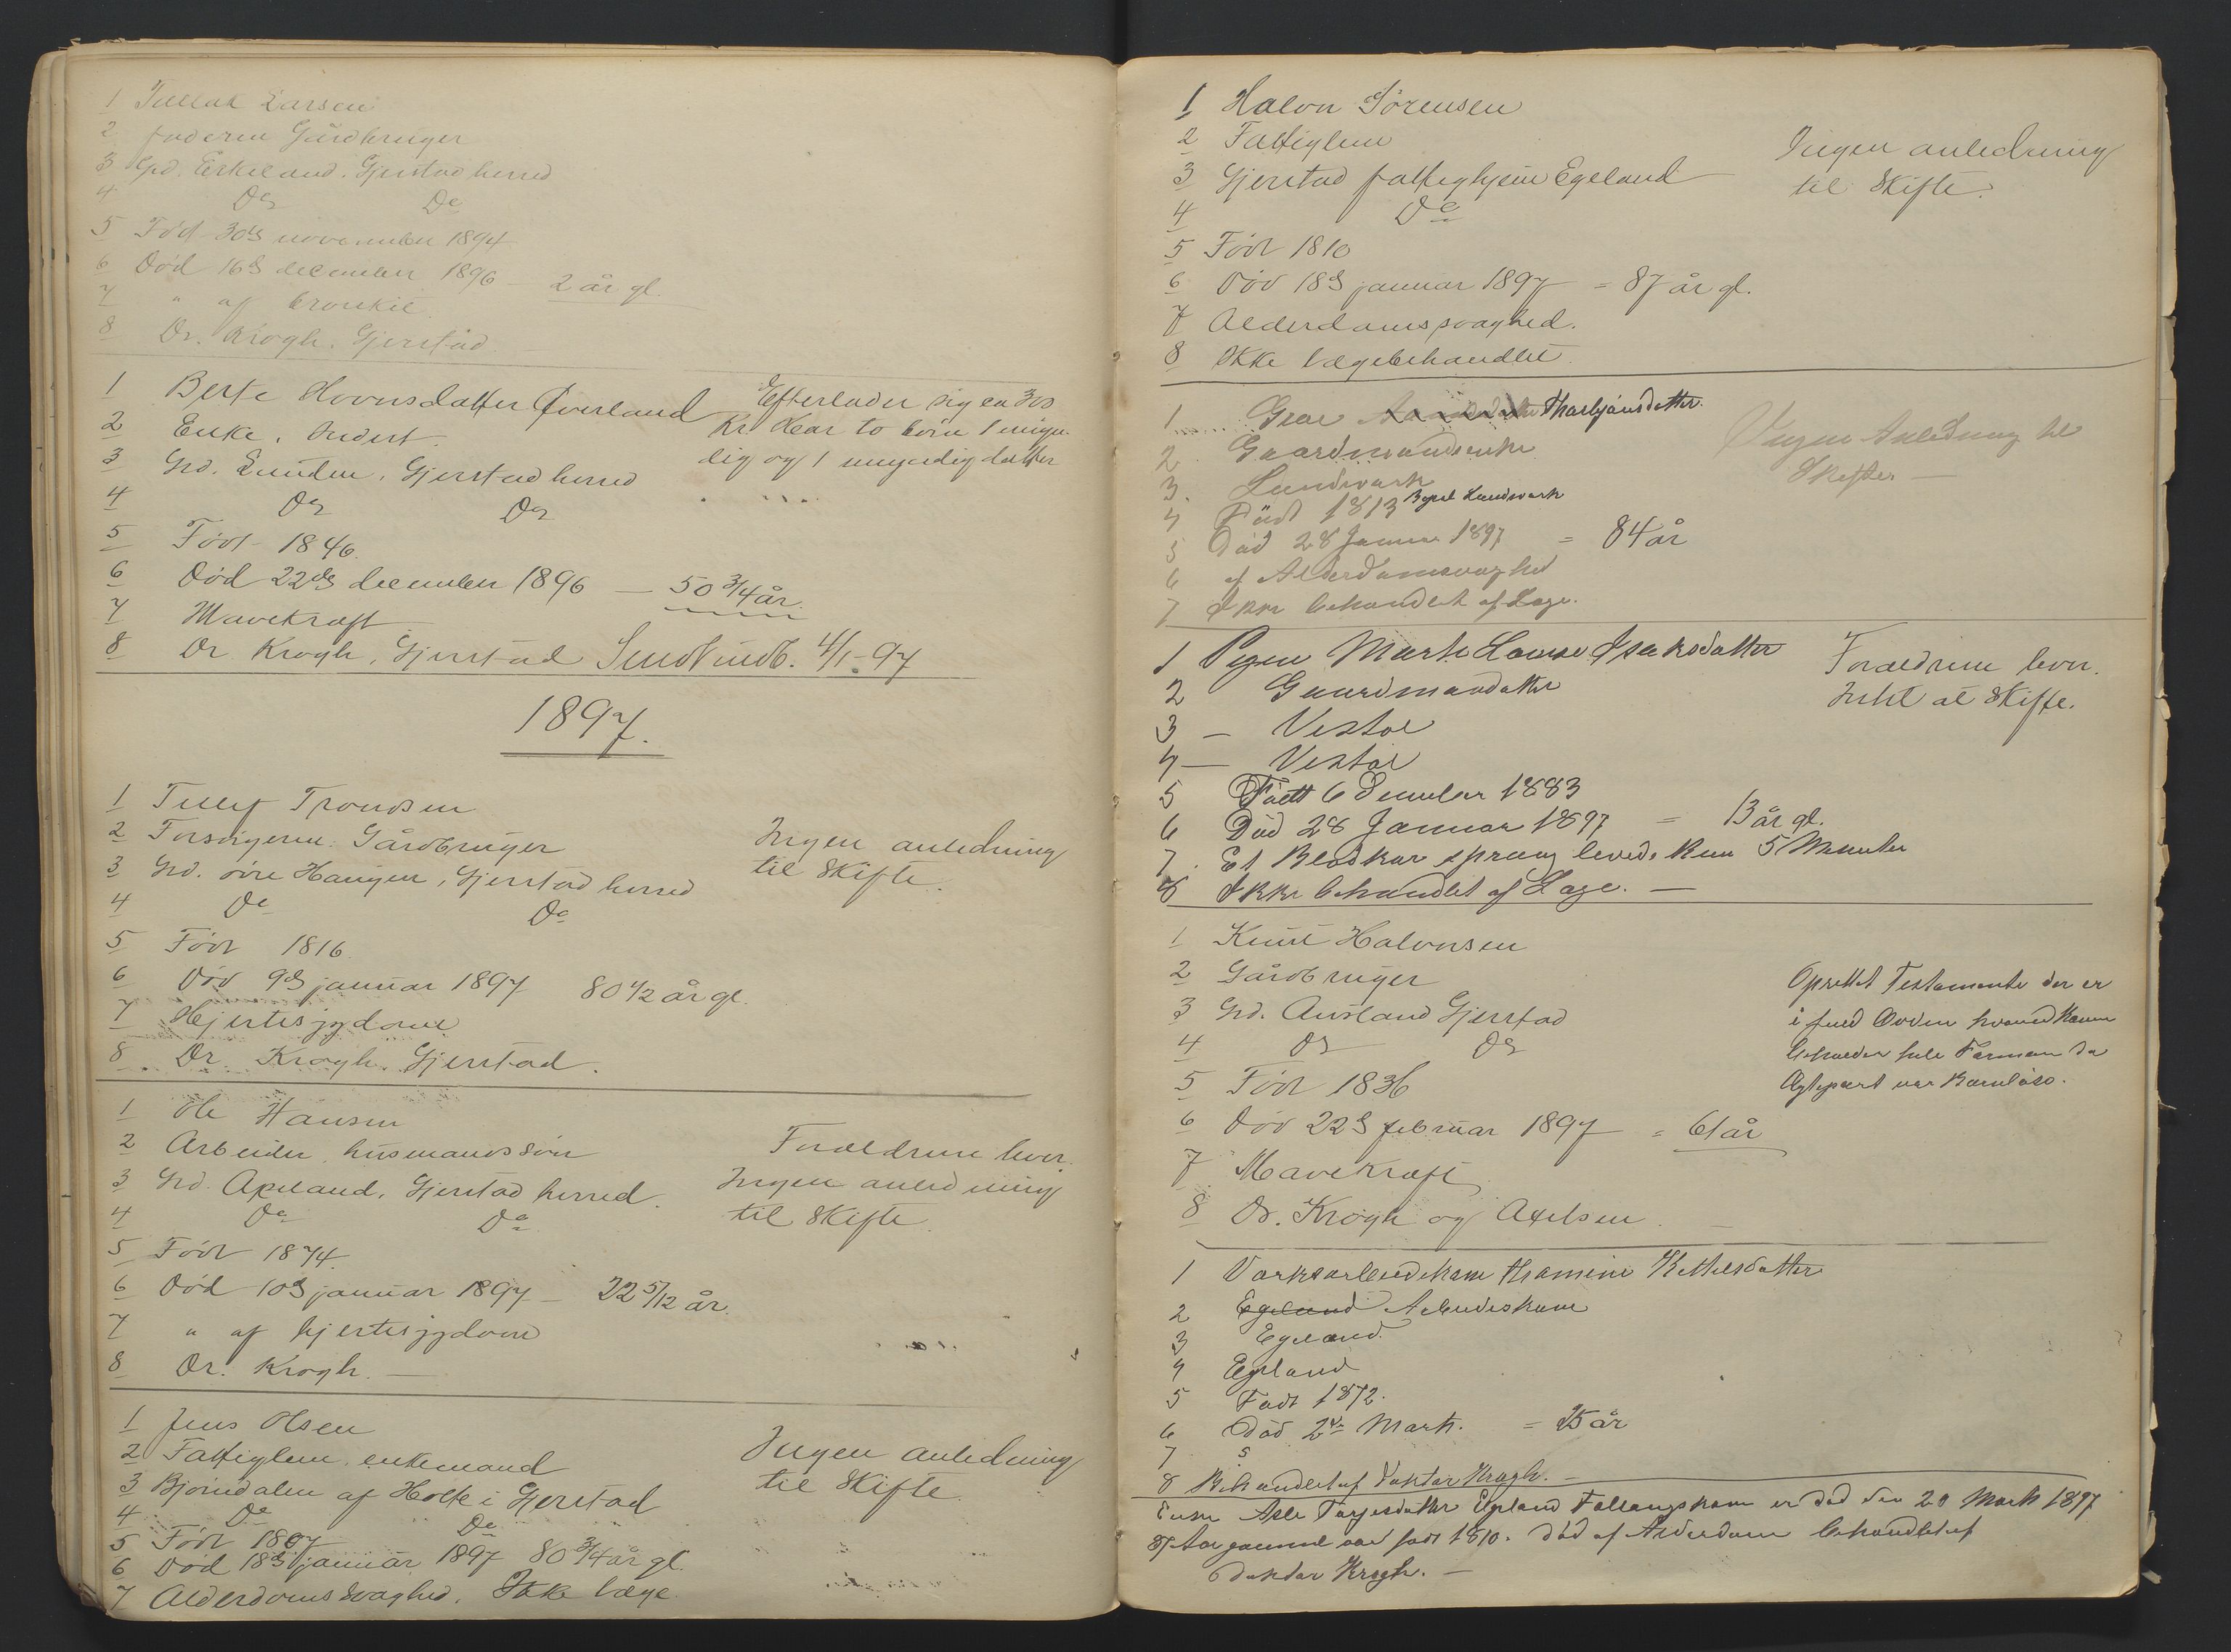 1 Tellak Larsen
2 faderen Gårdbruger
3 Grd. Eskeland. Gjerstad herred
4 Do Do
5 Född 30d november 1894
6 Död 16d december 1896 - 2 år gl.
7 " af bronkit.
8 Dr. Krogh. Gjerstad.
1 Berte Hovensdatter Qverland
2 Enke. Inderst.
3 Grd. Lunden, Gjerstad herred
4 Do Do
5 Född 1846.
6 Död 22d december 1896 — 50 3/4 år.
7 Mavekræft
8 Dr. Krogh, Gjerstad Sendt indb. 4/1-97
Efterlader sig ca 300
Kr. Har to börn 1 myn-
dig og 1 umyndig datter
1897.
1 Tellef Trondsen
2 Forsörgeren. Gårdbruger
3 Grd. övre Haugen, Gjerstad herred
4 Do Do
5 Född 1816.
6 Död 9d januar 1897 80 1/2 år gl.
7 Hjertesygdom
8 Dr. Krogh, Gjerstad.
Ingen anledning
til Skifte.
1 Ole Hansen
2 Arbeider, husmandssön
3 Grd. Apeland, Gjerstad herred.
4 Do Do
5 Född 1874.
6 Död 10d januar 1897 - 22 5/12 år.
7 " af hjertesygdom
8 Dr. Krogh. —
Foræeldrene lever.
Ingen anledning
til Skifte.
1 Jens Olsen
2 Fattiglem, enkemand
3 Björndalen af Holte i Gjerstad
4 Do Do
5 Född 1807
6 Död 18d januar 1897 80 3/4 år gl.
7 Alderdomssvaghed. Ikke læge
Ingen anledning
til Skifte.
1 Halvor Sörensen
2 Fattiglem
3 Gjerstad fattighjem Egeland
4 Do
5 Född 1810
6 Död 18d januar 1897 = 87 år gl.
7 Alderdomssvaghed.
8 Ikke lægebehandlet.
Ingen anledning
til Skifte.
1 Groe Thorbjönsdatter.
2 Gaardmandsenke
3. Lundvark
4 Född 1813 Bopæl Lundvark
5 Död 28 Januar 1897 = 84 år
6 af Alderdomsvaghed
7 Ikke behandlet af Læge.
Ingen Anledning til
Skifte. —
1 Pigen Marte Lovise Isaksdatter
2 Gaardmandatter
3 — Vestöl
4 — Vestöl
5 Föett 6 Desember 1883
6 Död 28 Januar 1897 = 13 år gl.
7. Et Blodkar sprang levede kun 5 Minuter
8 Ikke behandlet af Læge. —
Foræeldrene lever.
Intet at Skifte.
1 Knut Halvorsen
2 Gårdbruger
3 Grd. Ausland Gjerstad
4 Do Do
5 Född 1836
6 Död 22d februar 1897 = 61 år
7 Mavekræft
8 Dr. Krogh og Axelsen. —
Oprettet Testamente der er
i fuld Orden hvorved Konen
beholder hele Formuen da
Ægtepart var Barnlöse.
1 Varksarbeidskone Thomine Kittelsdatter
2 Egeland Arbeidskone
3 Egeland.
4 Egeland
5 Född 1872.
6 Död 2de Marts. = 25 år
7 s
8 Behandlet af Doktor Krogh. —
Enken Asle Tarjesdatter Egeland Fallangskone er död den 20 Marts 1897
87 Aar gammel var född 1810. död af Alderdom behandlet af
doktor Krogh. —